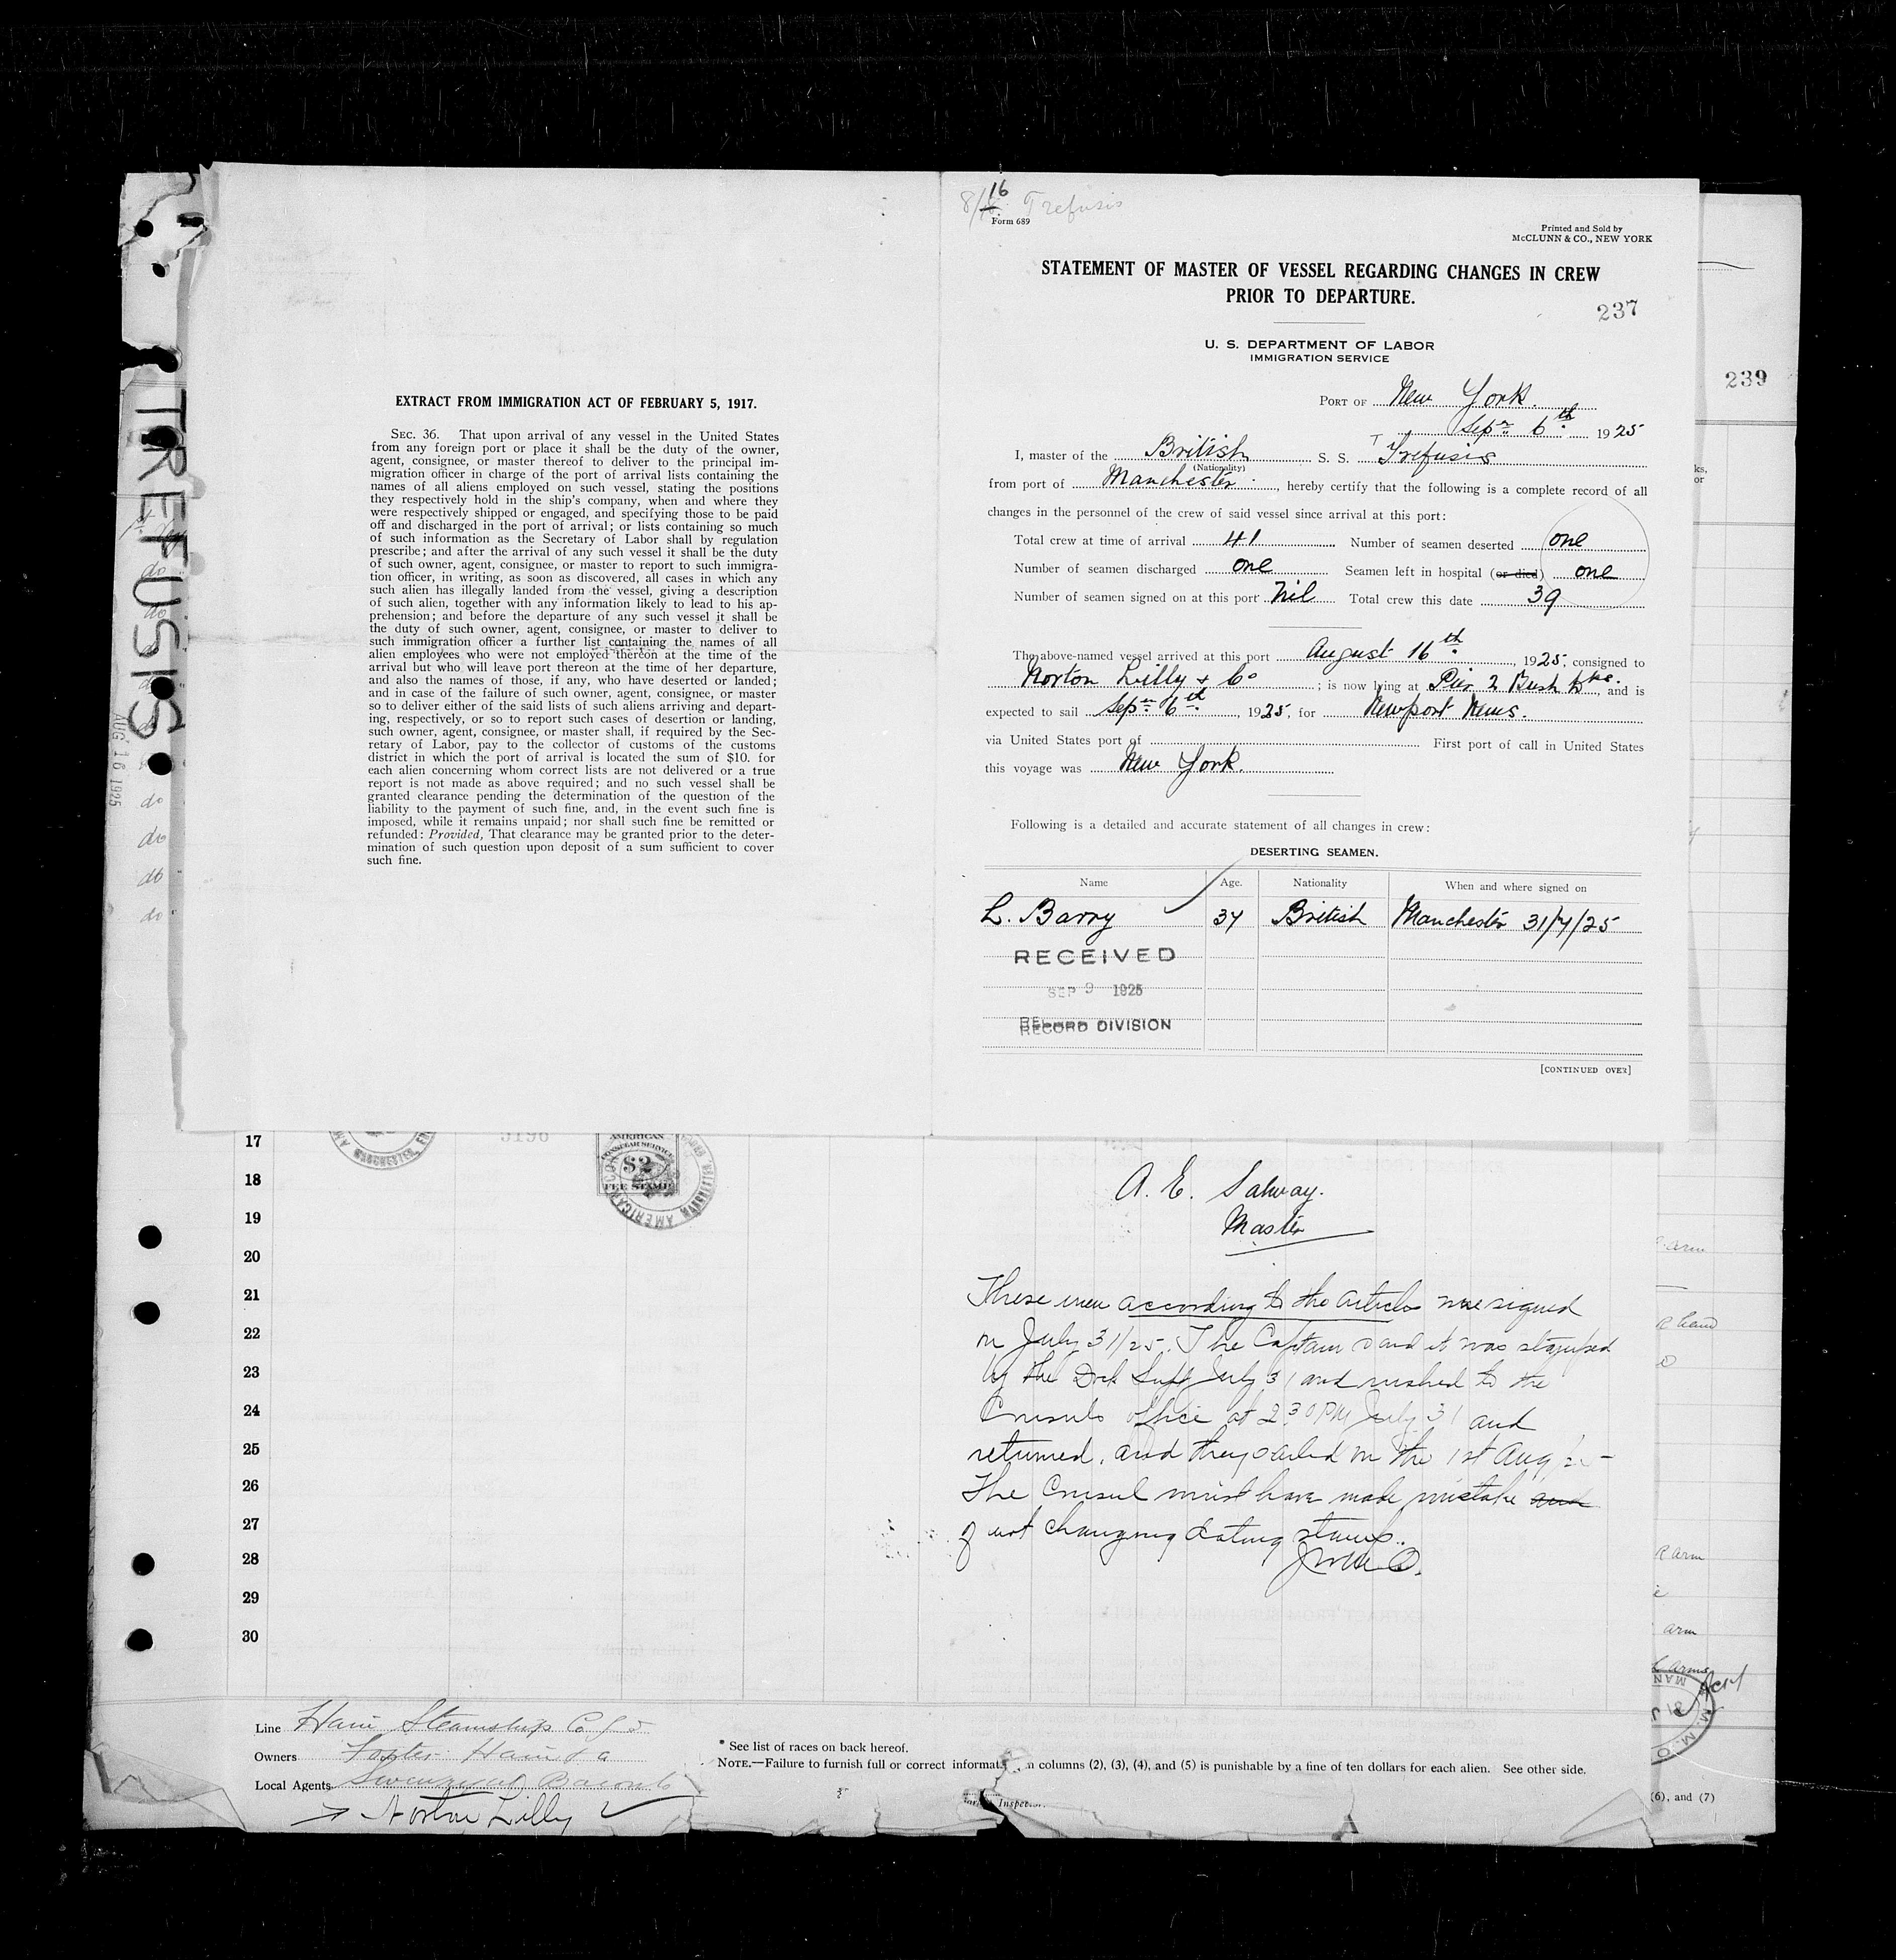 TREFUSIS
AUG 16 1925
do
do
do
do
do
EXTRACT FROM IMMIGRATION ACT OF FEBRUARY 5, 1917.
SEC. 36. That upon arrival of any vessel in the United States
from any foreign port or place it shall be the duty of the owner,
agent, consignee, or master thereof to deliver to the principal im-
migration officer in charge of the port of arrival lists containing the
names of all aliens employed on such vessel, stating the positions
they respectively hold in the ship's company, when and where they
were respectively shipped or engaged, and specifying those to be paid
off and discharged in the port of arrival; or lists containing so much
of such information as the Secretary of Labor shall by regulation
prescribe; and after the arrival of any such vessel it shall be the duty
of such owner, agent, consignee, or master to report to such immigra-
tion officer, in writing, as soon as discovered, all cases in which any
such alien has illegally landed from the vessel, giving a description
of such alien, together with any information likely to lead to his ap-
prehension; and before the departure of any such vessel it shall be
the duty of such owner, agent, consignee, or master to deliver to
such immigration officer a further list containing the names of all
alien employees who were not employed thereon at the time of the
arrival but who will leave port thereon at the time of her departure,
and also the names of those, if any, who have deserted or landed;
and in case of the failure of such owner, agent, consignee, or master
so to deliver either of the said lists of such aliens arriving and depart-
ing, respectively, or so to report such cases of desertion or landing,
such owner, agent, consignee, or master shall, if required by the Sec-
retary of Labor, pay to the collector of customs of the customs
district in which the port of arrival is located the sum of $10. for
each alien concerning whom correct lists are not delivered or a true
report is not made as above required; and no such vessel shall be
granted clearance pending the determination of the question of the
liability to the payment of such fine, and, in the event such fine is
imposed, while it remains unpaid; nor shall such fine be remitted or
refunded: Provided, That clearance may be granted prior to the deter-
mination of such question upon deposit of a sum sufficient to cover
such fine.
16
8/ Trefusis
Form 689
Printed and Sold by
McCLUNN & CO., NEW YORK
STATEMENT OF MASTER OF VESSEL REGARDING CHANGES IN CREW
PRIOR TO DEPARTURE.
237
U. S. DEPARTMENT OF LABOR
IMMIGRATION SERVICE
PORT OF New York.
Sepr 6th 1925
I, master of the British S. S. Trefusis
(Nationality)
from port of Manchester, hereby certify that the following is a complete record of all
changes in the personnel of the crew of said vessel since arrival at this port:
Total crew at time of arrival 41 Number of seamen deserted one
Number of seamen discharged one Seamen left in hospital (or died) one
Number of seamen signed on at this port Nil Total crew this date 39
The above-named vessel arrived at this port August 16th, 1925, consigned to
Norton Lilly & Co; is now lying at Pier 2 Bush Dks., and is
expected to sail Sepr 6th, 1925, for Newport News.
via United States port of First port of call in United States
this voyage was New York.
Following is a detailed and accurate statement of all changes in crew:
DESERTING SEAMEN.
Name Age. Nationality When and where signed on
L. Barry 37 British Manchester 31/7/25
RECEIVED
SEP 9 1925
RECORD DIVISION
[CONTINUED OVER]
239
17
18
19
20
21
22
23
24
25
26
27
28
29
30
AMERICAN
CONSULAR SERVICE
$2
FEE STAMP
A. E. Salway.
Master
These men according to the articles were signed
on July 31/25. The Captain said it was stamped
by the Dock Supt July 31 and rushed to the
Consuls office at 2 30 PM July 31 and
returned, and they sailed on the 1st Aug 25
The Consul must have made mistake and
of not changing dating stamp.
arm
R hand
R arm
arm
arms
Line Hain Steamship Co Ld
Owners Foster Hain & Co
Local Agents
→ Norton Lilly
* See list of races on back hereof.
NOTE.—Failure to furnish full or correct informat n columns (2), (3), (4), and (5) is punishable by a fine of ten dollars for each alien. See other side.
Inspector.
(6), and (7)